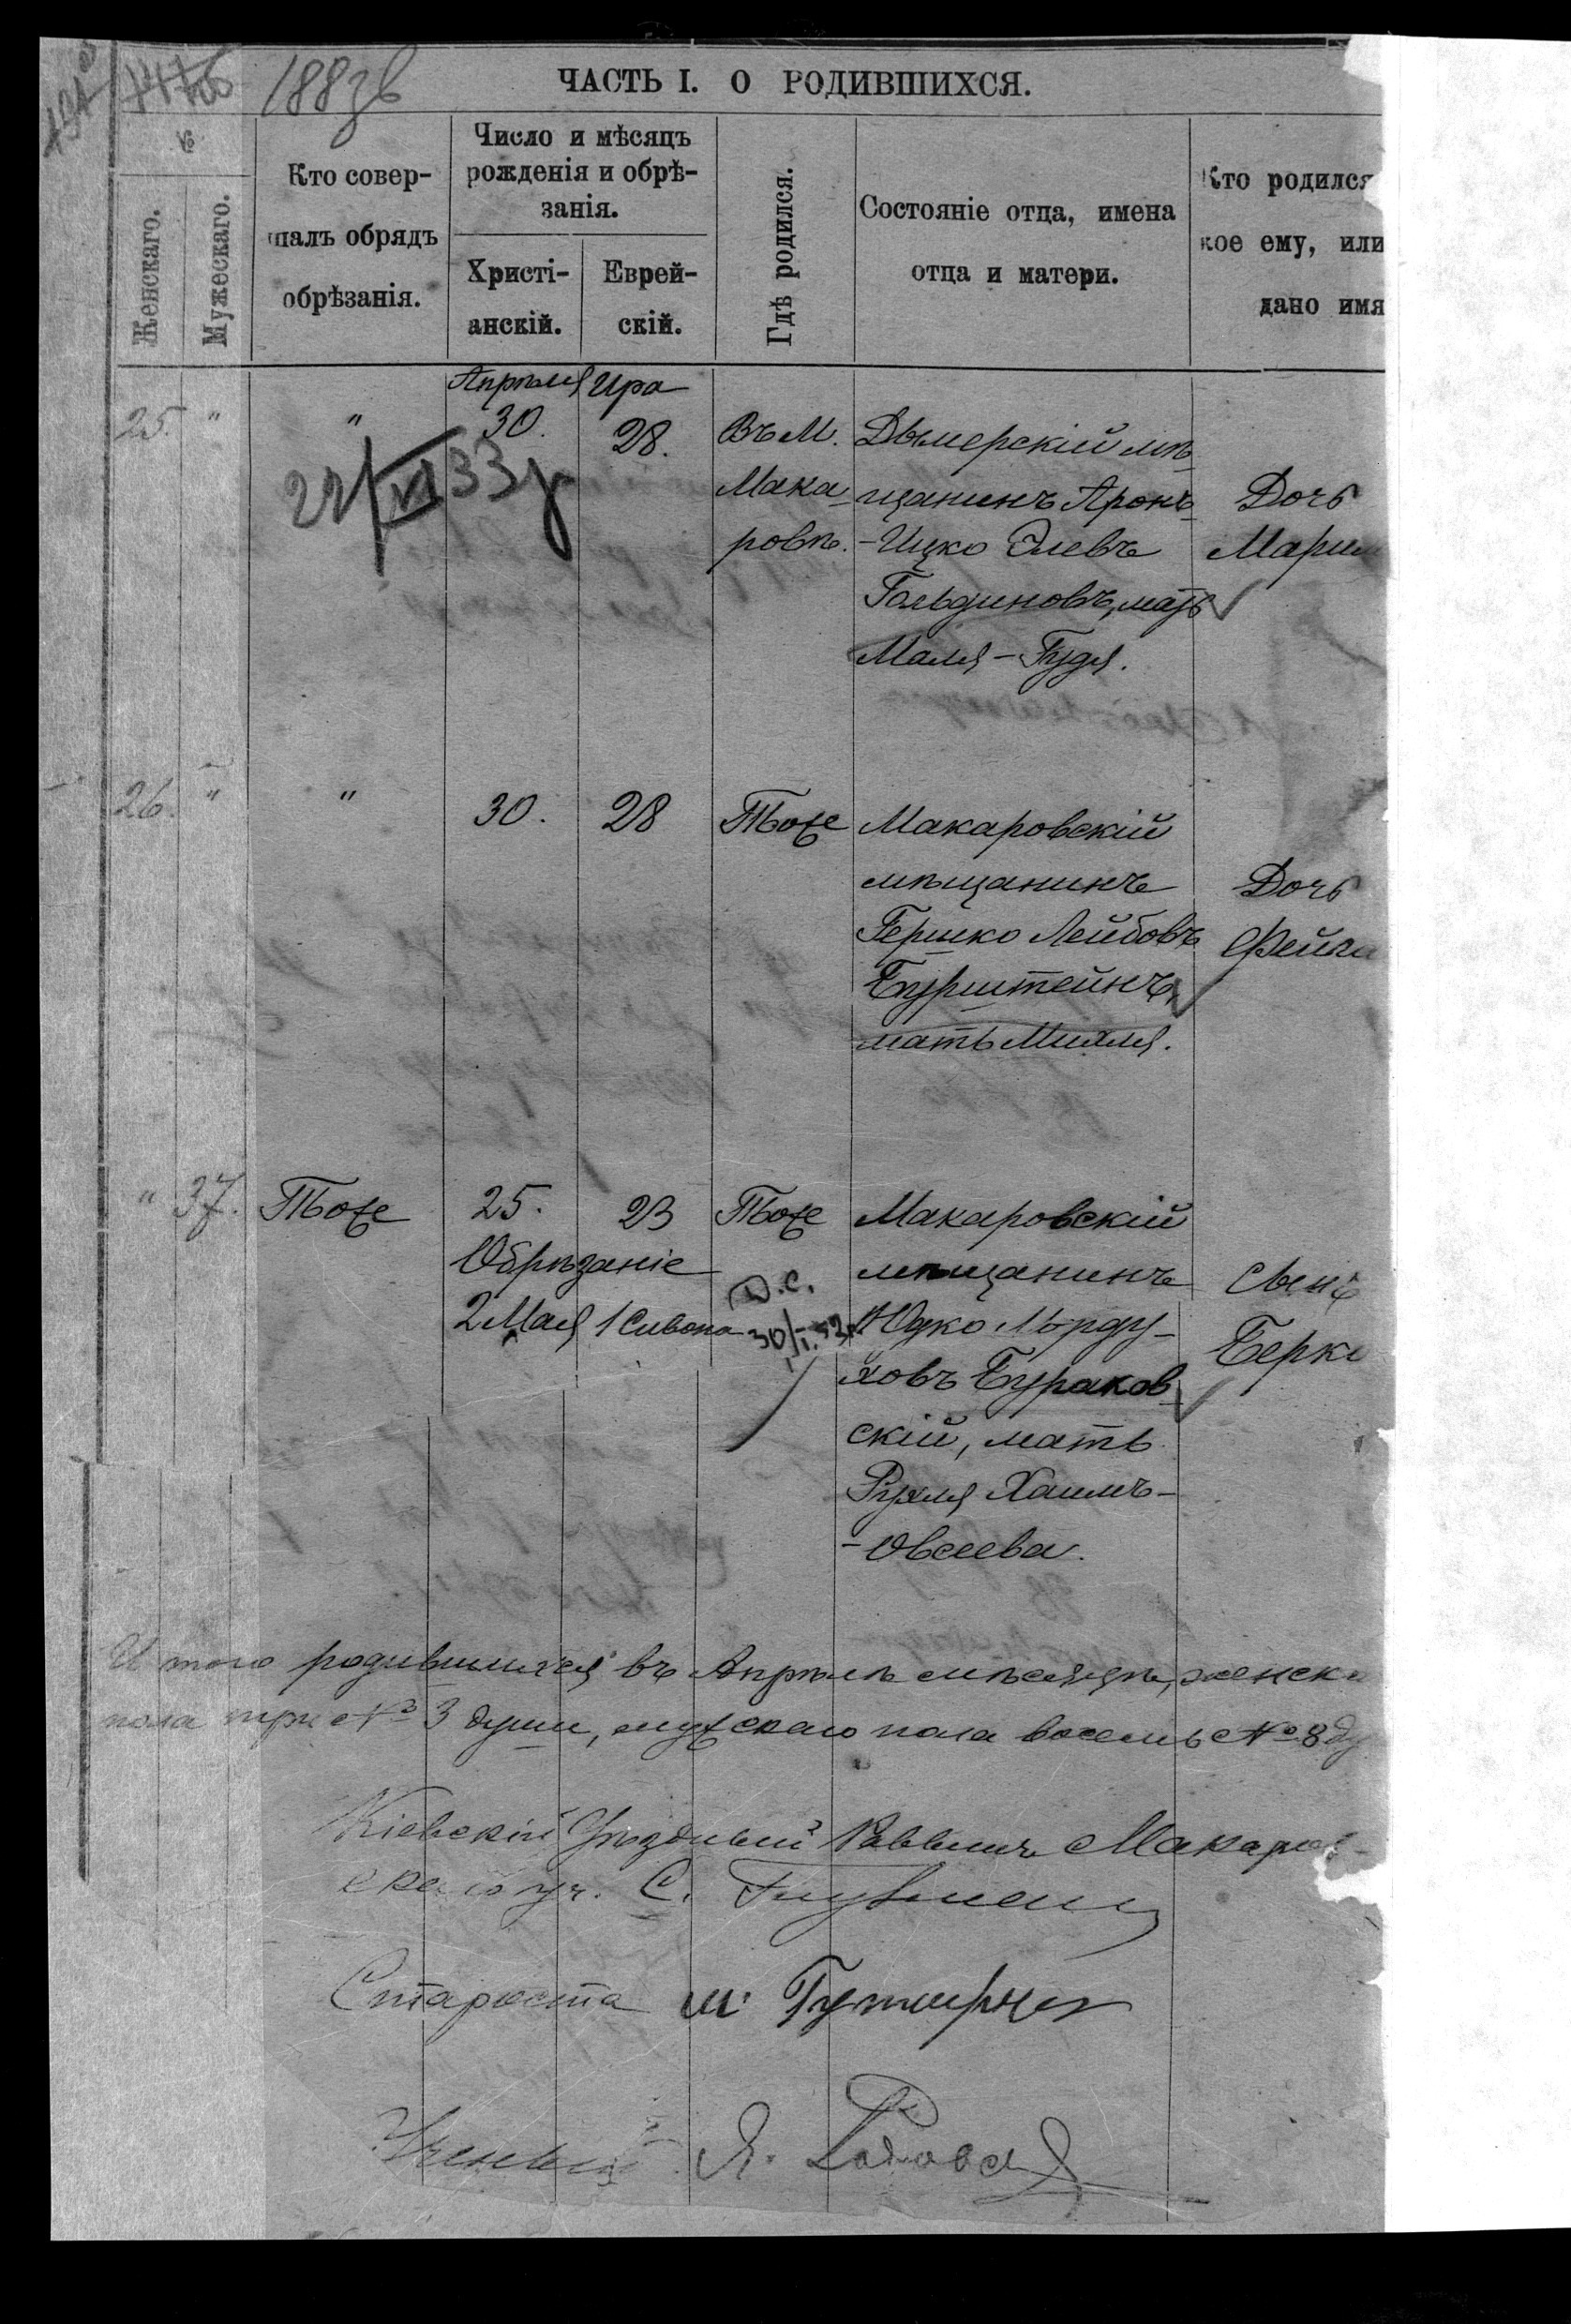 1883
ЧАСТЬ I. О РОДИВШИХСЯ.
№
Женскаго.
Мужескаго.
Кто совер-
шалъ обрядъ
обрѣзанія.
Число и мѣсяцъ
рожденія и обрѣ-
занія.
Христі-
анскій.
Еврей-
скій.
Гдѣ родился.
Состояніе отца, имена
отца и матери.
Кто родился
кое ему, или
дано имя
Апрѣля Ира
25. " " 30. 28.
22/VI 33 г
Въ М.
Мака-
ровѣ.
Дымерскій мѣ-
щанинъ Аронъ-
-Ицко Элевъ
Гольдиновъ, мать
Маля-Гудя.
Дочь
Марим
26. " " 30. 28 Тоже
Макаровскій
мѣщанинъ
Гершко Лейбовъ
Бурштейнъ,
мать Михля.
Дочь
Фейга
" 37. Тоже 25. 23 Тоже
Обрѣзаніе
2 Мая 1 Сивона
Д.С.
30/I.53г.
Макаровскій
мѣщанинъ
Юдко Морду-
ховъ Бураков-
скій, мать
Рухля Хаимъ-
-Овсеева.
Сынъ
Берко
Итого родившихся въ Апрѣлѣ мѣсяцѣ, женска
пола три № 3 души, мужскаго пола восемь № 8 ду
Кіевскій Уѣздный Раввинъ Макаров-
скаго уч. С.
Староста Ш.
Ученый Я.